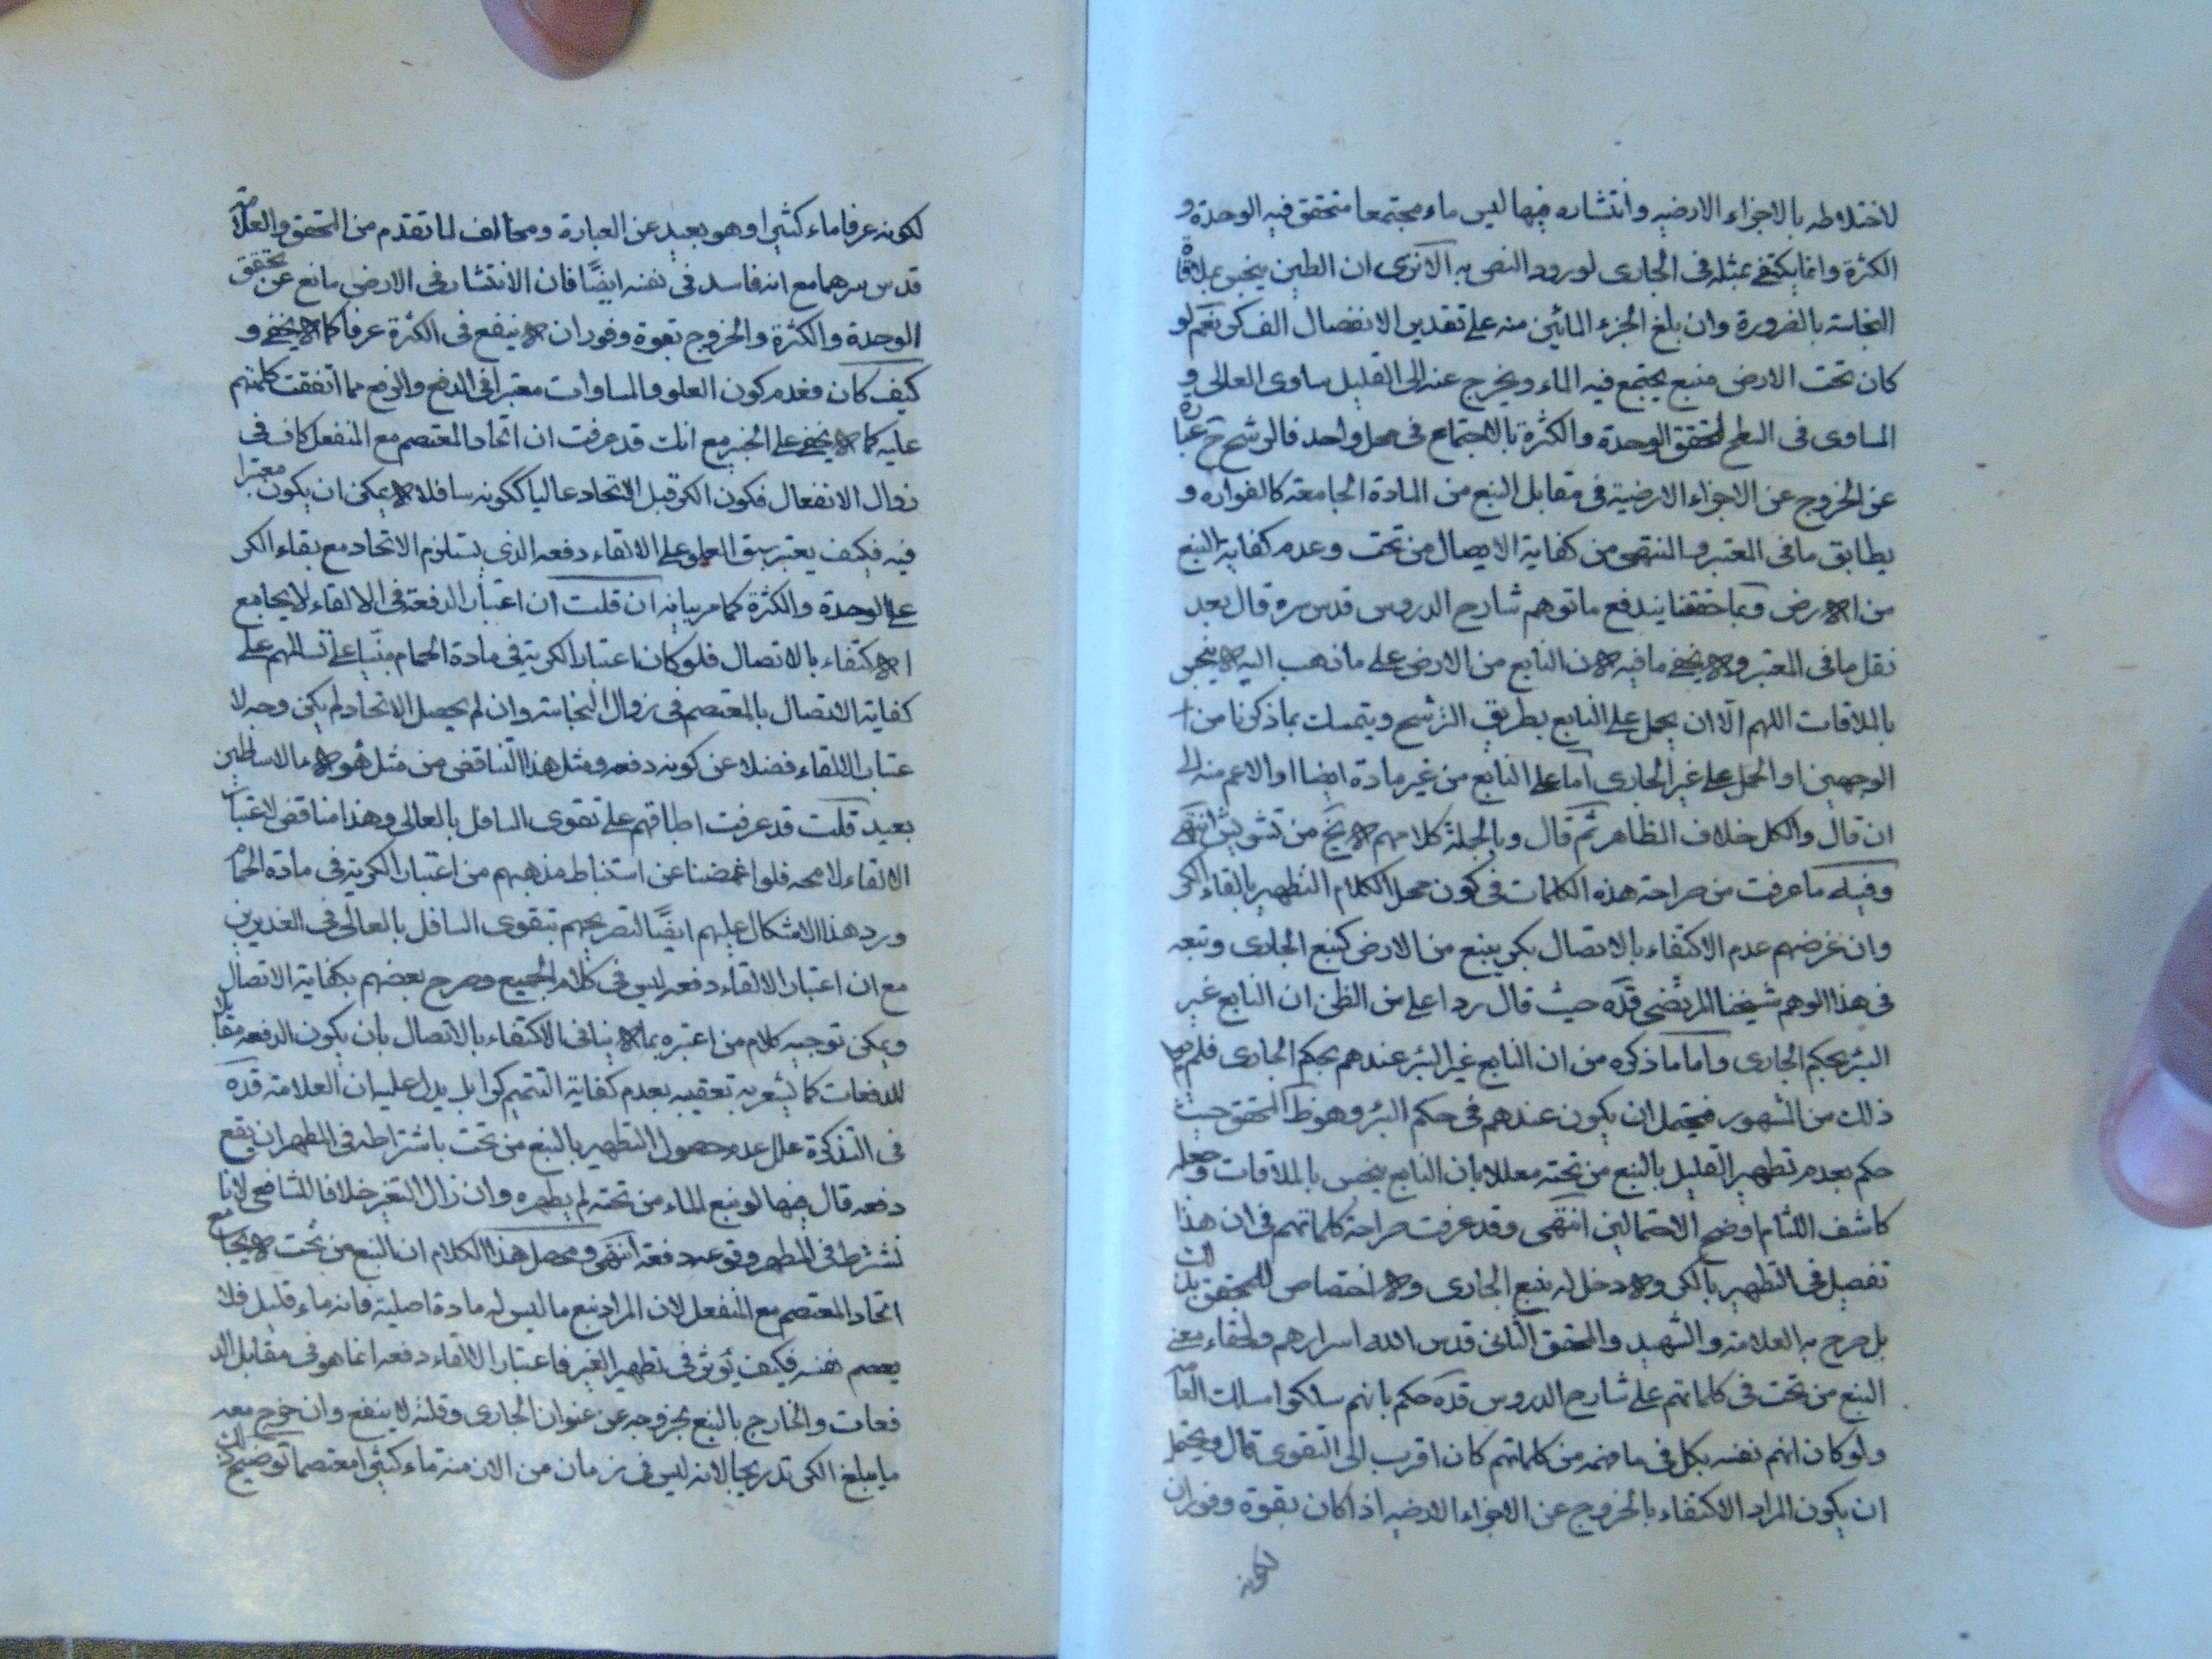 لاختلاطه بالاجزاء الارضيه وانتشاره فيها ليس ماء مجتمعا متحقق فيه الوحدة و
الكثرة وانما يكتفى بمثله فى الجارى لورود النص به الا ترى ان الطين ينجس بملاقاة
النجاسة بالضرورة وان بلغ الجزء المائى منه على تقدير الانفصال الف كر نعم لو
كان تحت الارض منبع يجتمع فيه الماء ويخرج عنه الى القليل ساوى العالى و
المساوى فى السطح لتحقق الوحدة والكثرة بالاجتماع فى محل واحد فالرشح ح عبارة
عن الخروج عن الاجزاء الارضية فى مقابل النبع من المادة الجامعة كالفواره و
يطابق ما فى المعتبر والمنتهى من كفاية الايصال من تحت وعدم كفاية النبع
من الارض وبما حققنا يندفع ما توهم شارح الدروس قدس سره قال بعد
نقل ما فى المعتبر ولا يخفى ما فيه لان النابع من الارض على ما ذهب اليه لا ينجس
بالملاقات اللهم الا ان يحمل على النابع بطريق الترشح ويتمسك بما ذكرنا من
الوجهين او الحمل على غير الجارى اما على النابع من غير مادة ايضا او الاعم منه الى
ان قال والكل خلاف الظاهر ثم قال وبالجملة كلامهم لا يخ من تشويش انتهى
وفيه ما عرفت من صراحة هذه الكلمات فى كون محل الكلام التطهير بالقاء الكر
وان غرضهم عدم الاكتفاء بالاتصال بكر ينبع من الارض كنبع الجارى وتبعه
فى هذا الوهم شيخنا المرتضى قده حيث قال ردا على من الظن ان النابع غير
البئر بحكم الجارى واما ما ذكره من ان النابع غير البئر عندهم بحكم الجارى فلم
ذلك من المشهور فيحتمل ان يكون عندهم فى حكم البئر وهو ظ المحقق حيث
حكم بعدم تطهير القليل بالنبع من تحته معللا بان النابع ينجس بالملاقات وجعله
كاشف اللثام اوضح الاحتمالين انتهى وقد عرفت صراحة كلماتهم فى ان هذا
تفصيل فى التطهير بالكر ولا دخل له بنبع الجارى ولا اختصاص للمحقق بذلك
بل صرح به العلامة والشهيد والمحقق الثانى قدس الله اسرارهم ولخفاء معنى
النبع من تحت فى كلماتهم على شارح الدروس قده حكم بانهم سلكوا مسلك العامة
ولو كان اتهم نفسه بكل فى ما فهمه من كلماتهم كان اقرب الى التقوى قال ويحتمل
ان يكون المراد الاكتفاء بالخروج عن الاجزاء الارضيه اذا كان بقوة وفوران
لكونه
لكونه عرفا ماء كثيرا وهو بعيد عن العبارة ومخالف لما تقدم من المحقق والعلامة
قدس سرهما مع انه فاسد فى نفسه ايضا فان الانتشار فى الارض مانع عن تحقق
الوحدة والكثرة والخروج بقوة وفوران لا ينفع فى الكثرة عرفا كما لا يخفى و
كيف كان فعدم كون العلو والمساوات معتبرا فى الدفع والرفع مما اتفقت كلمتهم
عليه كما لا يخفى على الخبير مع انك قد عرفت ان اتحاد المعتصم مع المنفعل كاف فى
زوال الانفعال فكون الكر قبل الاتحاد عاليا ككونه سافلا لا يمكن ان يكون معتبرا
فيه فكيف يعتبر سبق العلو على الالقاء دفعه الذى يستلزم الاتحاد مع بقاء الكر
على الوحدة والكثرة كما مر بيانه ان قلت ان اعتبار الدفعة فى الالقاء لا يجامع
الاكتفاء بالاتصال فلو كان اعتبار الكرية فى مادة الحمام مبنيا على تسالمهم على
كفاية الاتصال بالمعتصم فى زوال النجاسة وان لم يحصل الاتحاد لم يكن وجه لا
عتبار الالقاء فضلا عن كونه دفعه ومثل هذا التناقض من مثل هولاء الاساطين
بعيد قلت قد عرفت اطباقهم على تقوى السافل بالعالى وهذا مناقض لاعتبار
الالقاء لا محه فلو اغمضنا عن استنباط مذهبهم من اعتبار الكرية فى مادة الحمام
ورد هذا الاشكال عليهم ايضا لتصريحهم بتقوى السافل بالعالى فى الغديرين
مع ان اعتبار الالقاء دفعه ليس فى كلام الجميع وصرح بعضهم بكفاية الاتصال
ويمكن توجيه كلام من اعتبره بما لا ينافى الاكتفاء بالاتصال بان يكون الدفعه مقابلا
للدفعات كما يشعر به تعقيبه بعدم كفاية التتميم كرا بل يدل عليه ان العلامة قده
فى التذكرة علل عدم حصول التطهير بالنبع من تحت باشتراطه فى المطهر ان يقع
دفعه قال فيها لو نبع الماء من تحته لم يطهره وان زال التغير خلافا للشافعى لانا
نشترط فى المطهر وقوعه دفعة انتهى ومحصل هذا الكلام ان النبع من تحت لا يجامع
اتحاد المعتصم مع المنفعل لان المراد نبع ما ليس له مادة اصلية فانه ماء قليل فلا
يعصم نفسه فكيف يؤثر فى تطهير الغير فاعتبار الالقاء دفعه انما هو فى مقابل الد
فعات والخارج بالنبع بخروجه عن عنوان الجارى وقلته لا ينفع وان خرج معه
ما يبلغ الكر تدريجا لانه ليس فى زمان من الازمنة ماء كثيرا معتصما توضيح ذلك